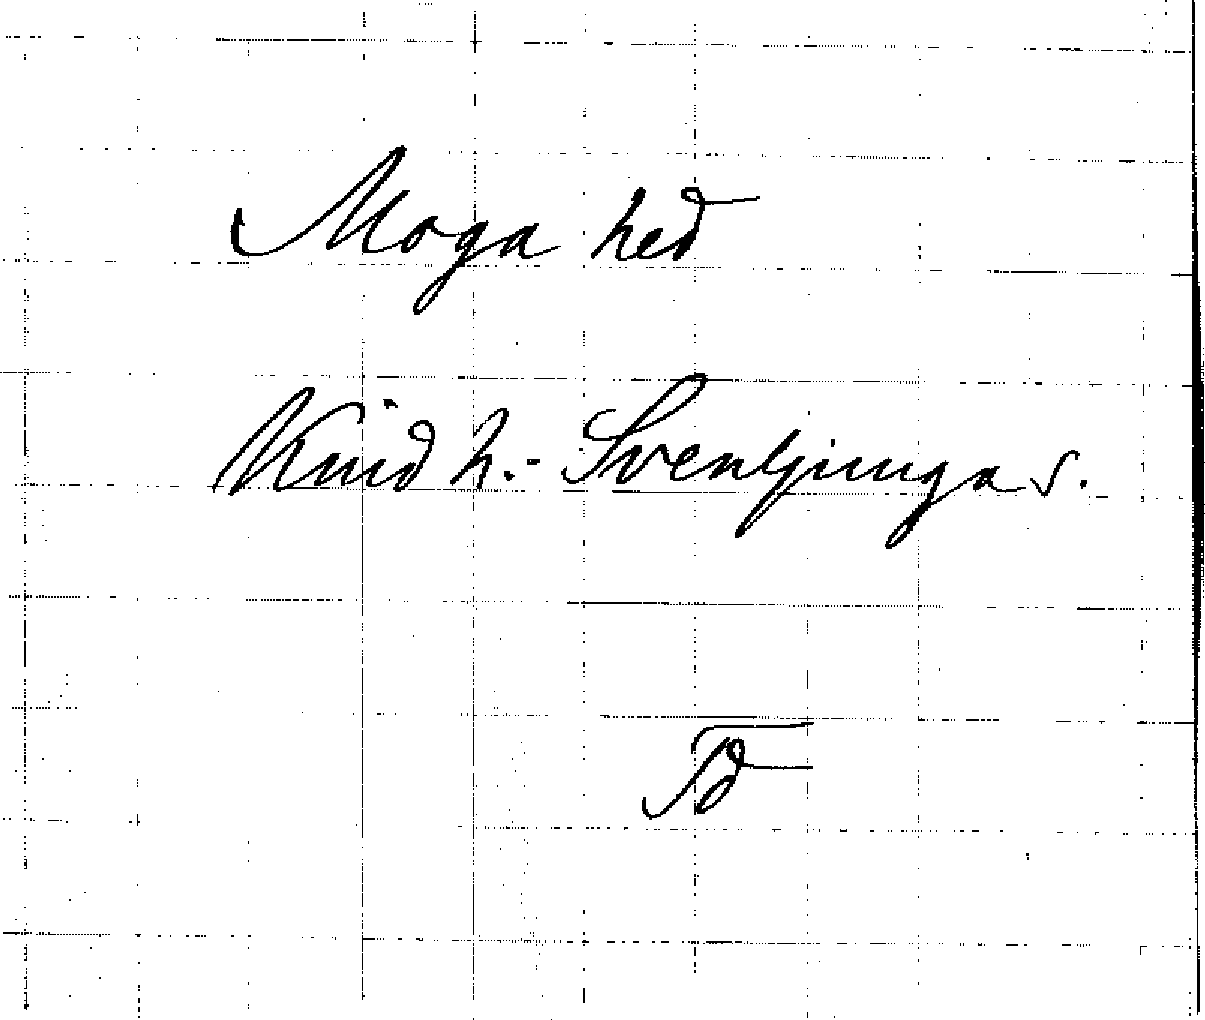 Moga hed
Kind h.- Svenljunga s.
Td